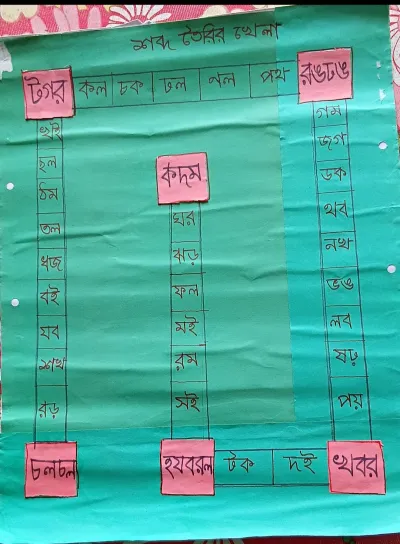 শব্দ তৈরির খেলা
টগর কল চক ঢল নল পথ রঙচঙ
খই গম
ছল জগ
ঠম কদম ডক
তল ঘর থব
ধজ ঝড় নখ
বই ফল ভঙ
যব মই লব
শখ রম ষঢ়
বড় সই পয়
চলচল হযবরল টক দই খবর